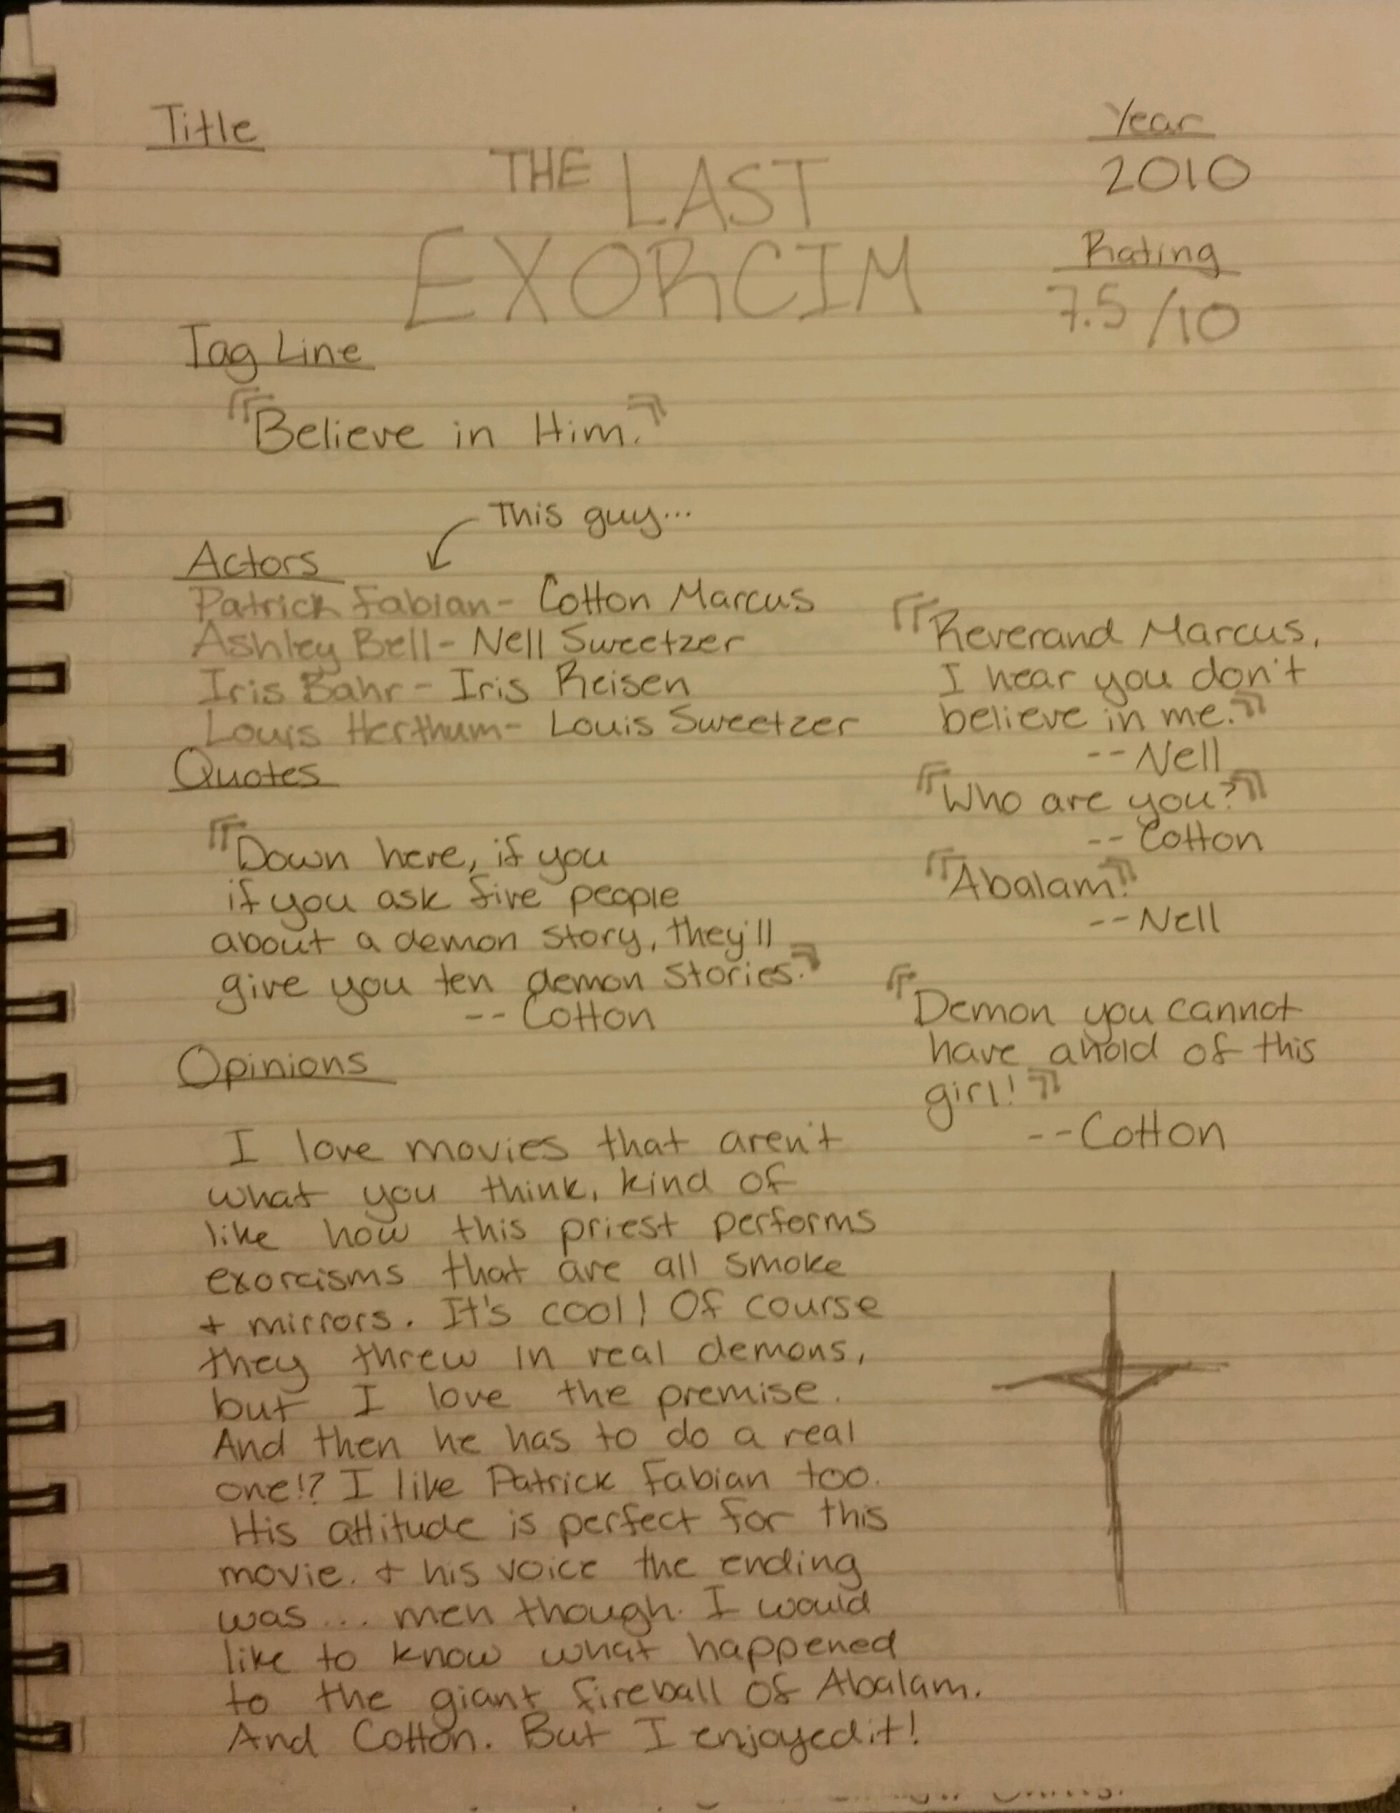 Title
THE LAST
EXORCIM
Year
2010
Rating
7.5/10
Tag Line
"Believe in Him."
This guy...
Actors
Patrick Fabian- Cotton Marcus
Ashley Bell- Nell Sweetzer
Iris Bahr- Iris Reisen
Louis Herthum- Louis Sweetzer
Quotes
"Down here, if you
if you ask five people
about a demon story, they'll
give you ten demon stories."
-- Cotton
"Reverand Marcus,
I hear you don't
believe in me."
-- Nell
"Who are you?"
-- Cotton
"Abalam!"
-- Nell
"Demon you cannot
have ahold of this
girl!"
-- Cotton
Opinions
I love movies that aren't
what you think, kind of
like how this priest performs
exorcisms that are all smoke
+ mirrors. It's cool! Of course
they threw in real demons,
but I love the premise.
And then he has to do a real
one!? I like Patrick Fabian too.
His attitude is perfect for this
movie. + his voice the ending
was... meh though. I would
like to know what happened
to the giant fireball of Abalam.
And Cotton. But I enjoyed it!